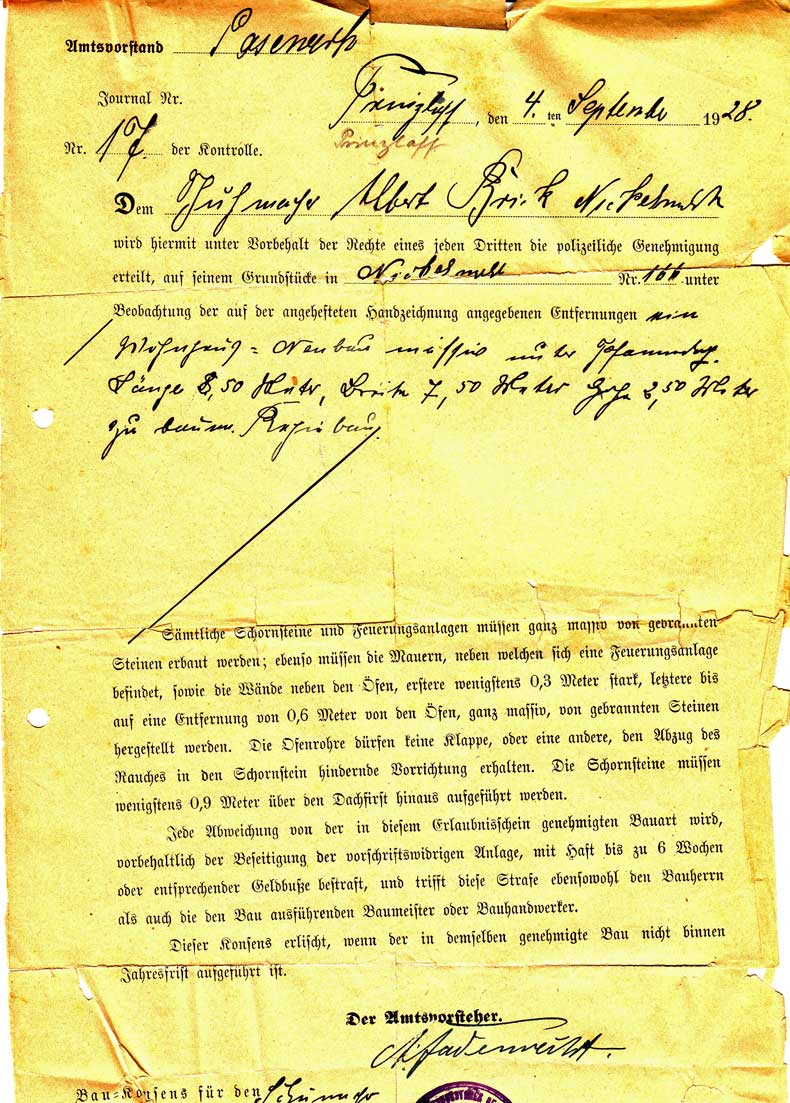 Amtsvorstand Pasewark
Journal Nr.
Prinzlaff, den 4. ten September 1928.
Prinzlaff
Nr. 17. der Kontrolle.
Dem Schuhmacher Albert Brick Nickelswalde
wird hiermit unter Vorbehalt der Rechte eines jeden Dritten die polizeiliche Genehmigung
erteilt, auf seinem Grundstücke in Nickelswalde Nr. 166 unter
Beobachtung der auf der angehefteten Handzeichnung angegebenen Entfernungen ein
Wohnhaus = Neubau massiv unter Pfannendach.
Länge 8,50 Meter, Breite 7,50 Meter Höhe 2,50 Meter
zu bauen.
Sämtliche Schornsteine und Feuerungsanlagen müssen ganz massiv von gebrannten
Steinen erbaut werden; ebenso müssen die Mauern, neben welchen sich eine Feuerungsanlage
befindet, sowie die Wände neben den Öfen, erstere wenigstens 0,3 Meter stark, letztere bis
auf eine Entfernung von 0,6 Meter von den Öfen, ganz massiv, von gebrannten Steinen
hergestellt werden. Die Ofenrohre dürfen keine Klappe, oder eine andere, den Abzug des
Rauches in den Schornstein hindernde Vorrichtung erhalten. Die Schornsteine müssen
wenigstens 0,9 Meter über den Dachfirst hinaus aufgeführt werden.
Jede Abweichung von der in diesem Erlaubnisschein genehmigten Bauart wird,
vorbehaltlich der Beseitigung der vorschriftswidrigen Anlage, mit Haft bis zu 6 Wochen
oder entsprechender Geldbuße bestraft, und trifft diese Strafe ebensowohl den Bauherrn
als auch die den Bau ausführenden Baumeister oder Bauhandwerker.
Dieser Konsens erlischt, wenn der in demselben genehmigte Bau nicht binnen
Jahresfrist aufgeführt ist.
Der Amtsvorsteher.
Bau=Konsens für den